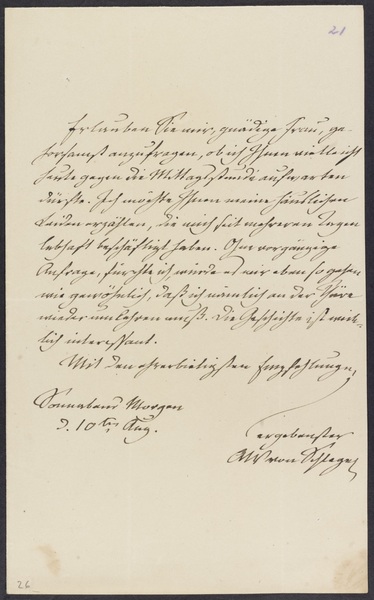 21
Erlauben Sie mir, gnädige Frau, ge-
horsamst anzufragen, ob ich Ihnen vielleicht
heute gegen die Mittagsstunde aufwarten
dürfte. Ich möchte Ihnen meine häuslichen
Leiden erzählen, die mich seit mehreren Tagen
lebhaft beschäftigt haben. Ohne vorgängige
Anfrage, fürchte ich würde es mir eben so gehen
wie gewöhnlich, daß ich nämlich an der Thüre
wieder umkehren muß. Die Geschichte ist wirk-
lich interessant.
Mit den ehrerbietigsten Empfehlungen
Sonnabend Morgen
d. 10ten Aug.
ergebenster
AW von Schlegel
26